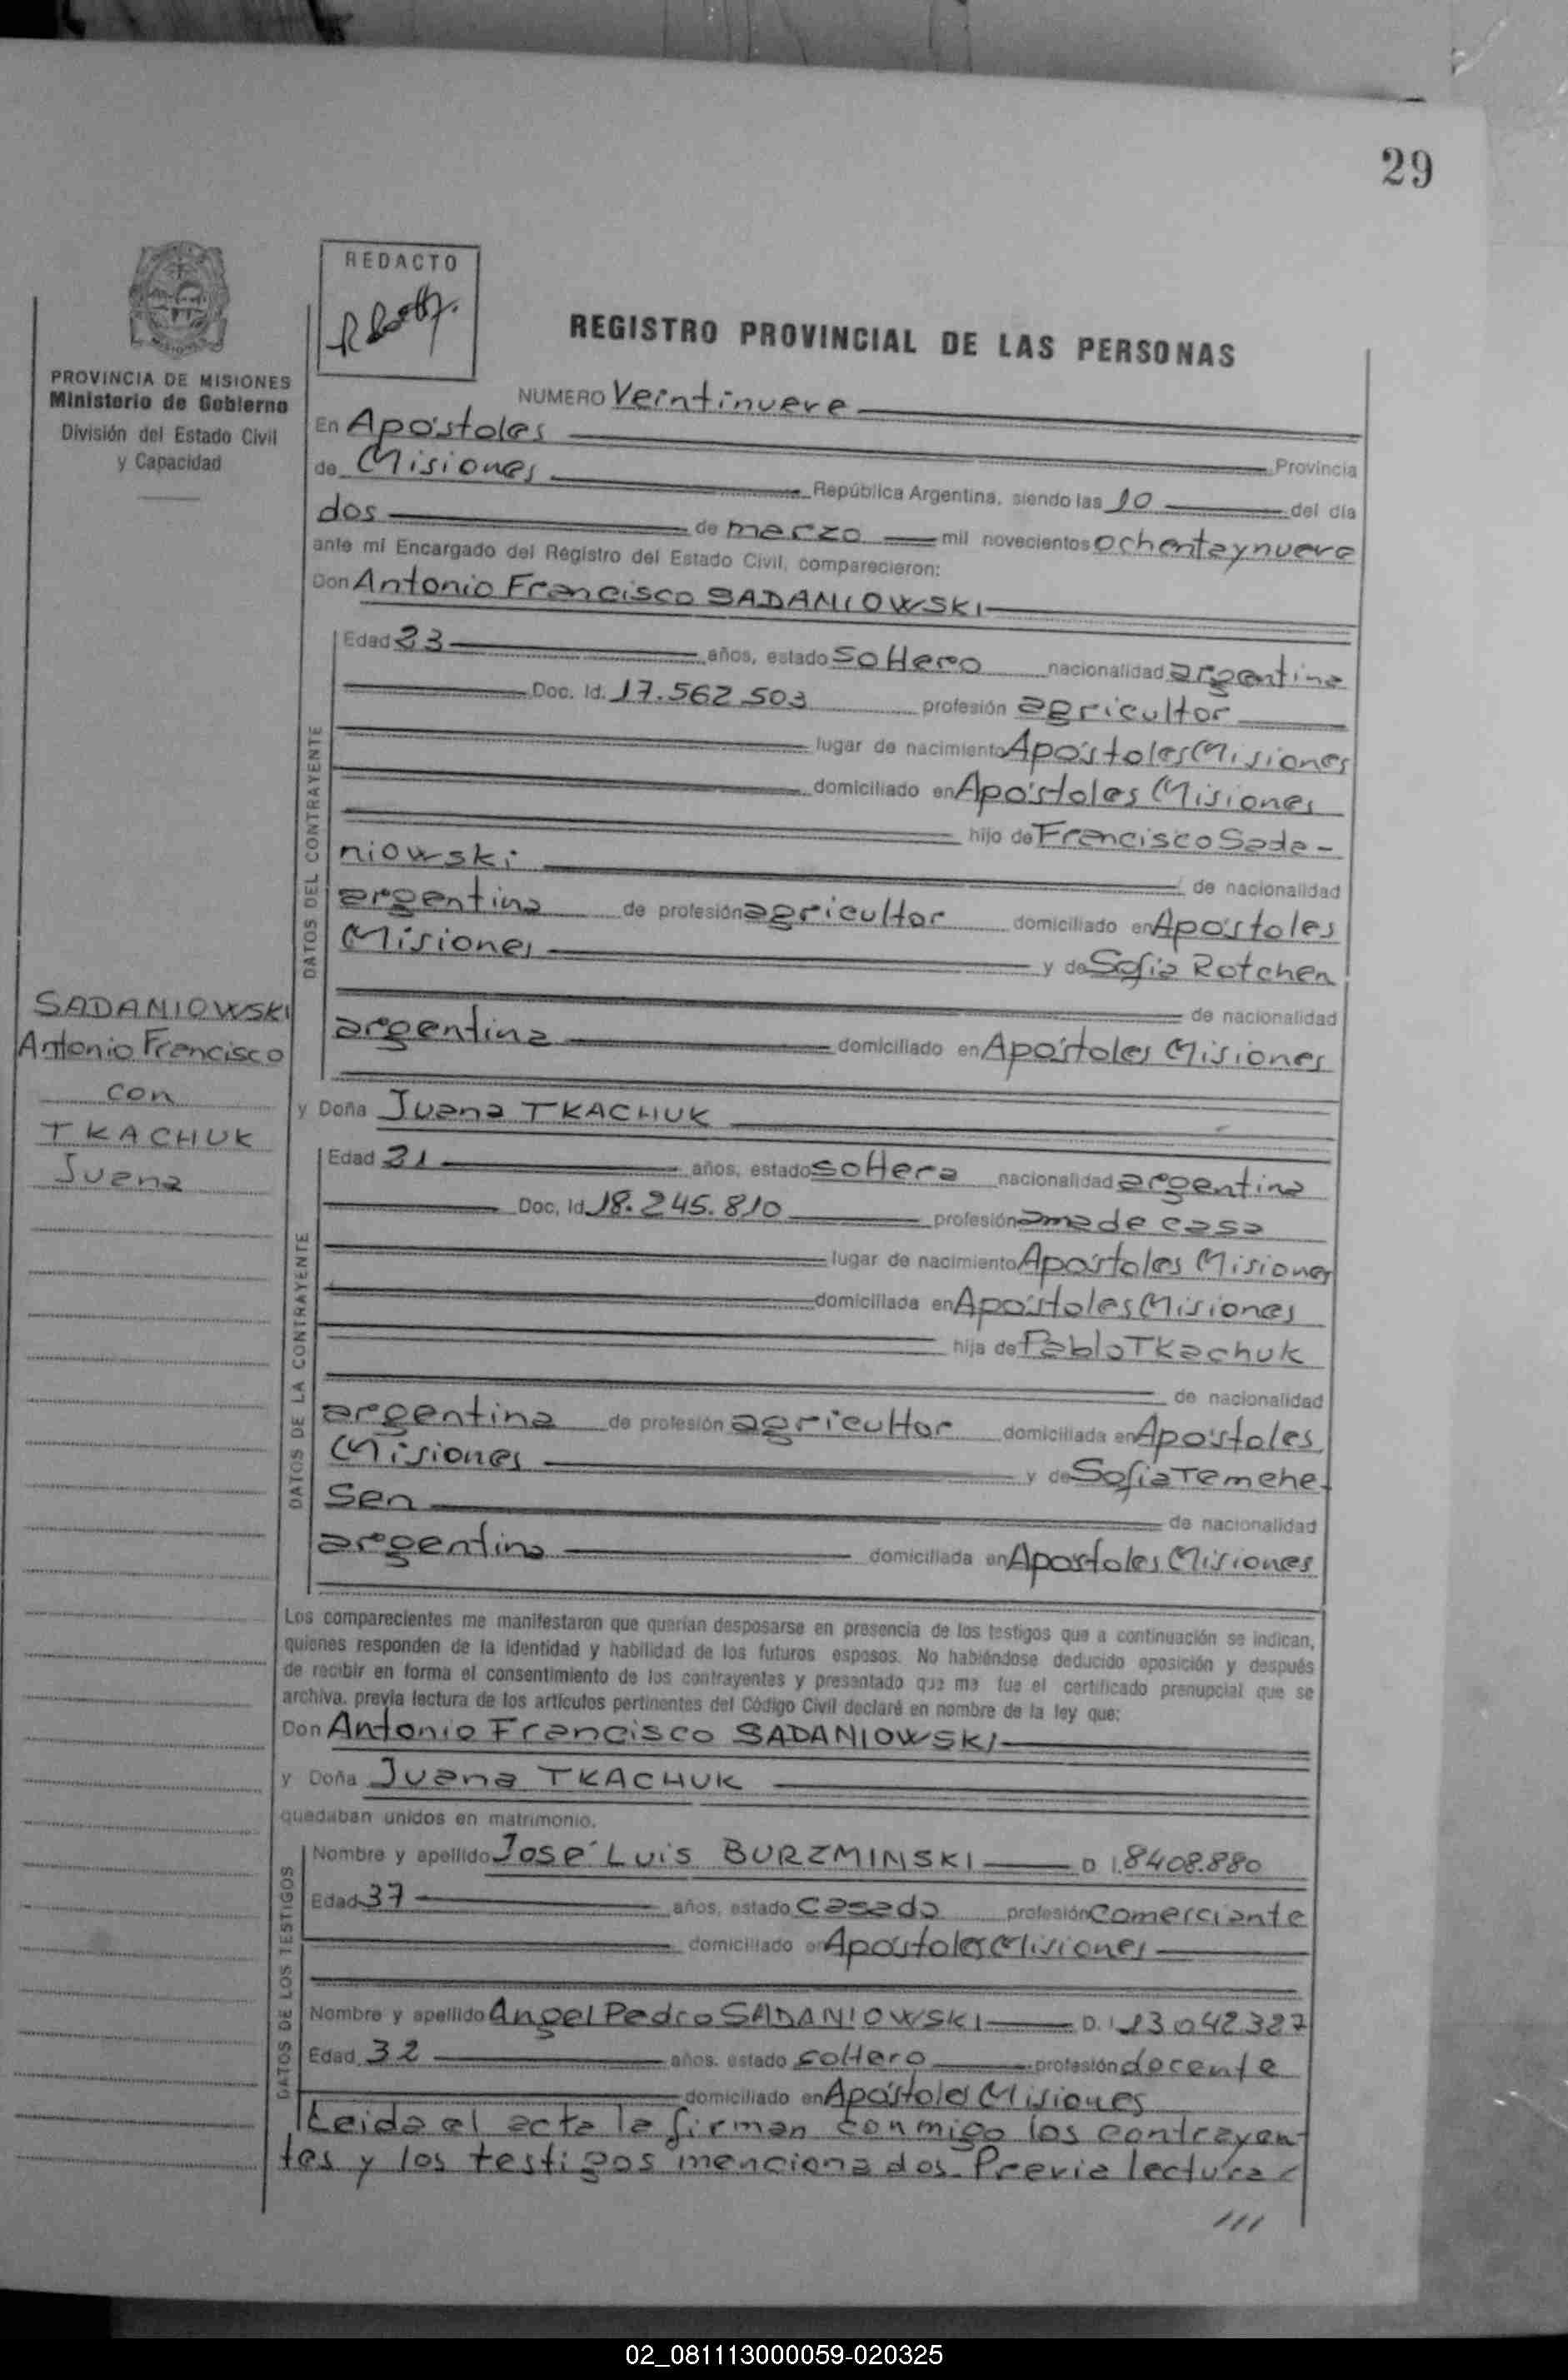 29
REDACTO
PROVINCIA DE MISIONES
Ministerio de Gobierno
División del Estado Civil
y Capacidad
REGISTRO PROVINCIAL DE LAS PERSONAS
NUMERO Veintinueve
En Apóstoles Provincia
de Misiones República Argentina, siendo las 10 del día
dos de marzo mil novecientos ochenta y nueve
ante mí Encargado del Registro del Estado Civil, comparecieron:
Don Antonio Francisco SADANIOWSKI
DATOS DEL CONTRAYENTE
Edad 23 años, estado soltero nacionalidad argentina
Doc. Id. 17.562.503 profesión agricultor
lugar de nacimiento Apóstoles Misiones
domiciliado en Apóstoles Misiones
hijo de Francisco Sada-
niowski de nacionalidad
argentina de profesión agricultor domiciliado en Apóstoles
Misiones y de Sofia Rotchen
de nacionalidad
argentina domiciliado en Apóstoles Misiones
SADANIOWSKI
Antonio Francisco
con
TKACHUK
Juana
y Doña Juana TKACHUK
DATOS DE LA CONTRAYENTE
Edad 21 años, estado soltera nacionalidad argentina
Doc. Id 18.245.810 profesión ama de casa
lugar de nacimiento Apóstoles Misiones
domiciliada en Apóstoles Misiones
hija de Pablo TKachuk
de nacionalidad
argentina de profesión agricultor domiciliada en Apóstoles
Misiones y de Sofia Temche-
sen de nacionalidad
argentina domiciliada en Apóstoles Misiones
Los comparecientes me manifestaron que querían desposarse en presencia de los testigos que a continuación se indican,
quienes responden de la identidad y habilidad de los futuros esposos. No habiéndose deducido oposición y después
de recibir en forma el consentimiento de los contrayentes y presentado que me fue el certificado prenupcial que se
archiva, previa lectura de los artículos pertinentes del Código Civil declaré en nombre de la ley que:
Don Antonio Francisco SADANIOWSKI
y Doña Juana TKACHUK
quedaban unidos en matrimonio.
DATOS DE LOS TESTIGOS
Nombre y apellido José Luis BURZMINSKI D I. 8408.880
Edad 37 años, estado casado profesión comerciante
domiciliado en Apóstoles Misiones
Nombre y apellido Angel Pedro SADANIOWSKI D. I 13042327
Edad 32 años, estado soltero profesión docente
domiciliado en Apóstoles Misiones
Leida el acta la firman conmigo los contrayen-
tes y los testigos mencionados. Previa lectura
///
02_081113000059-020325